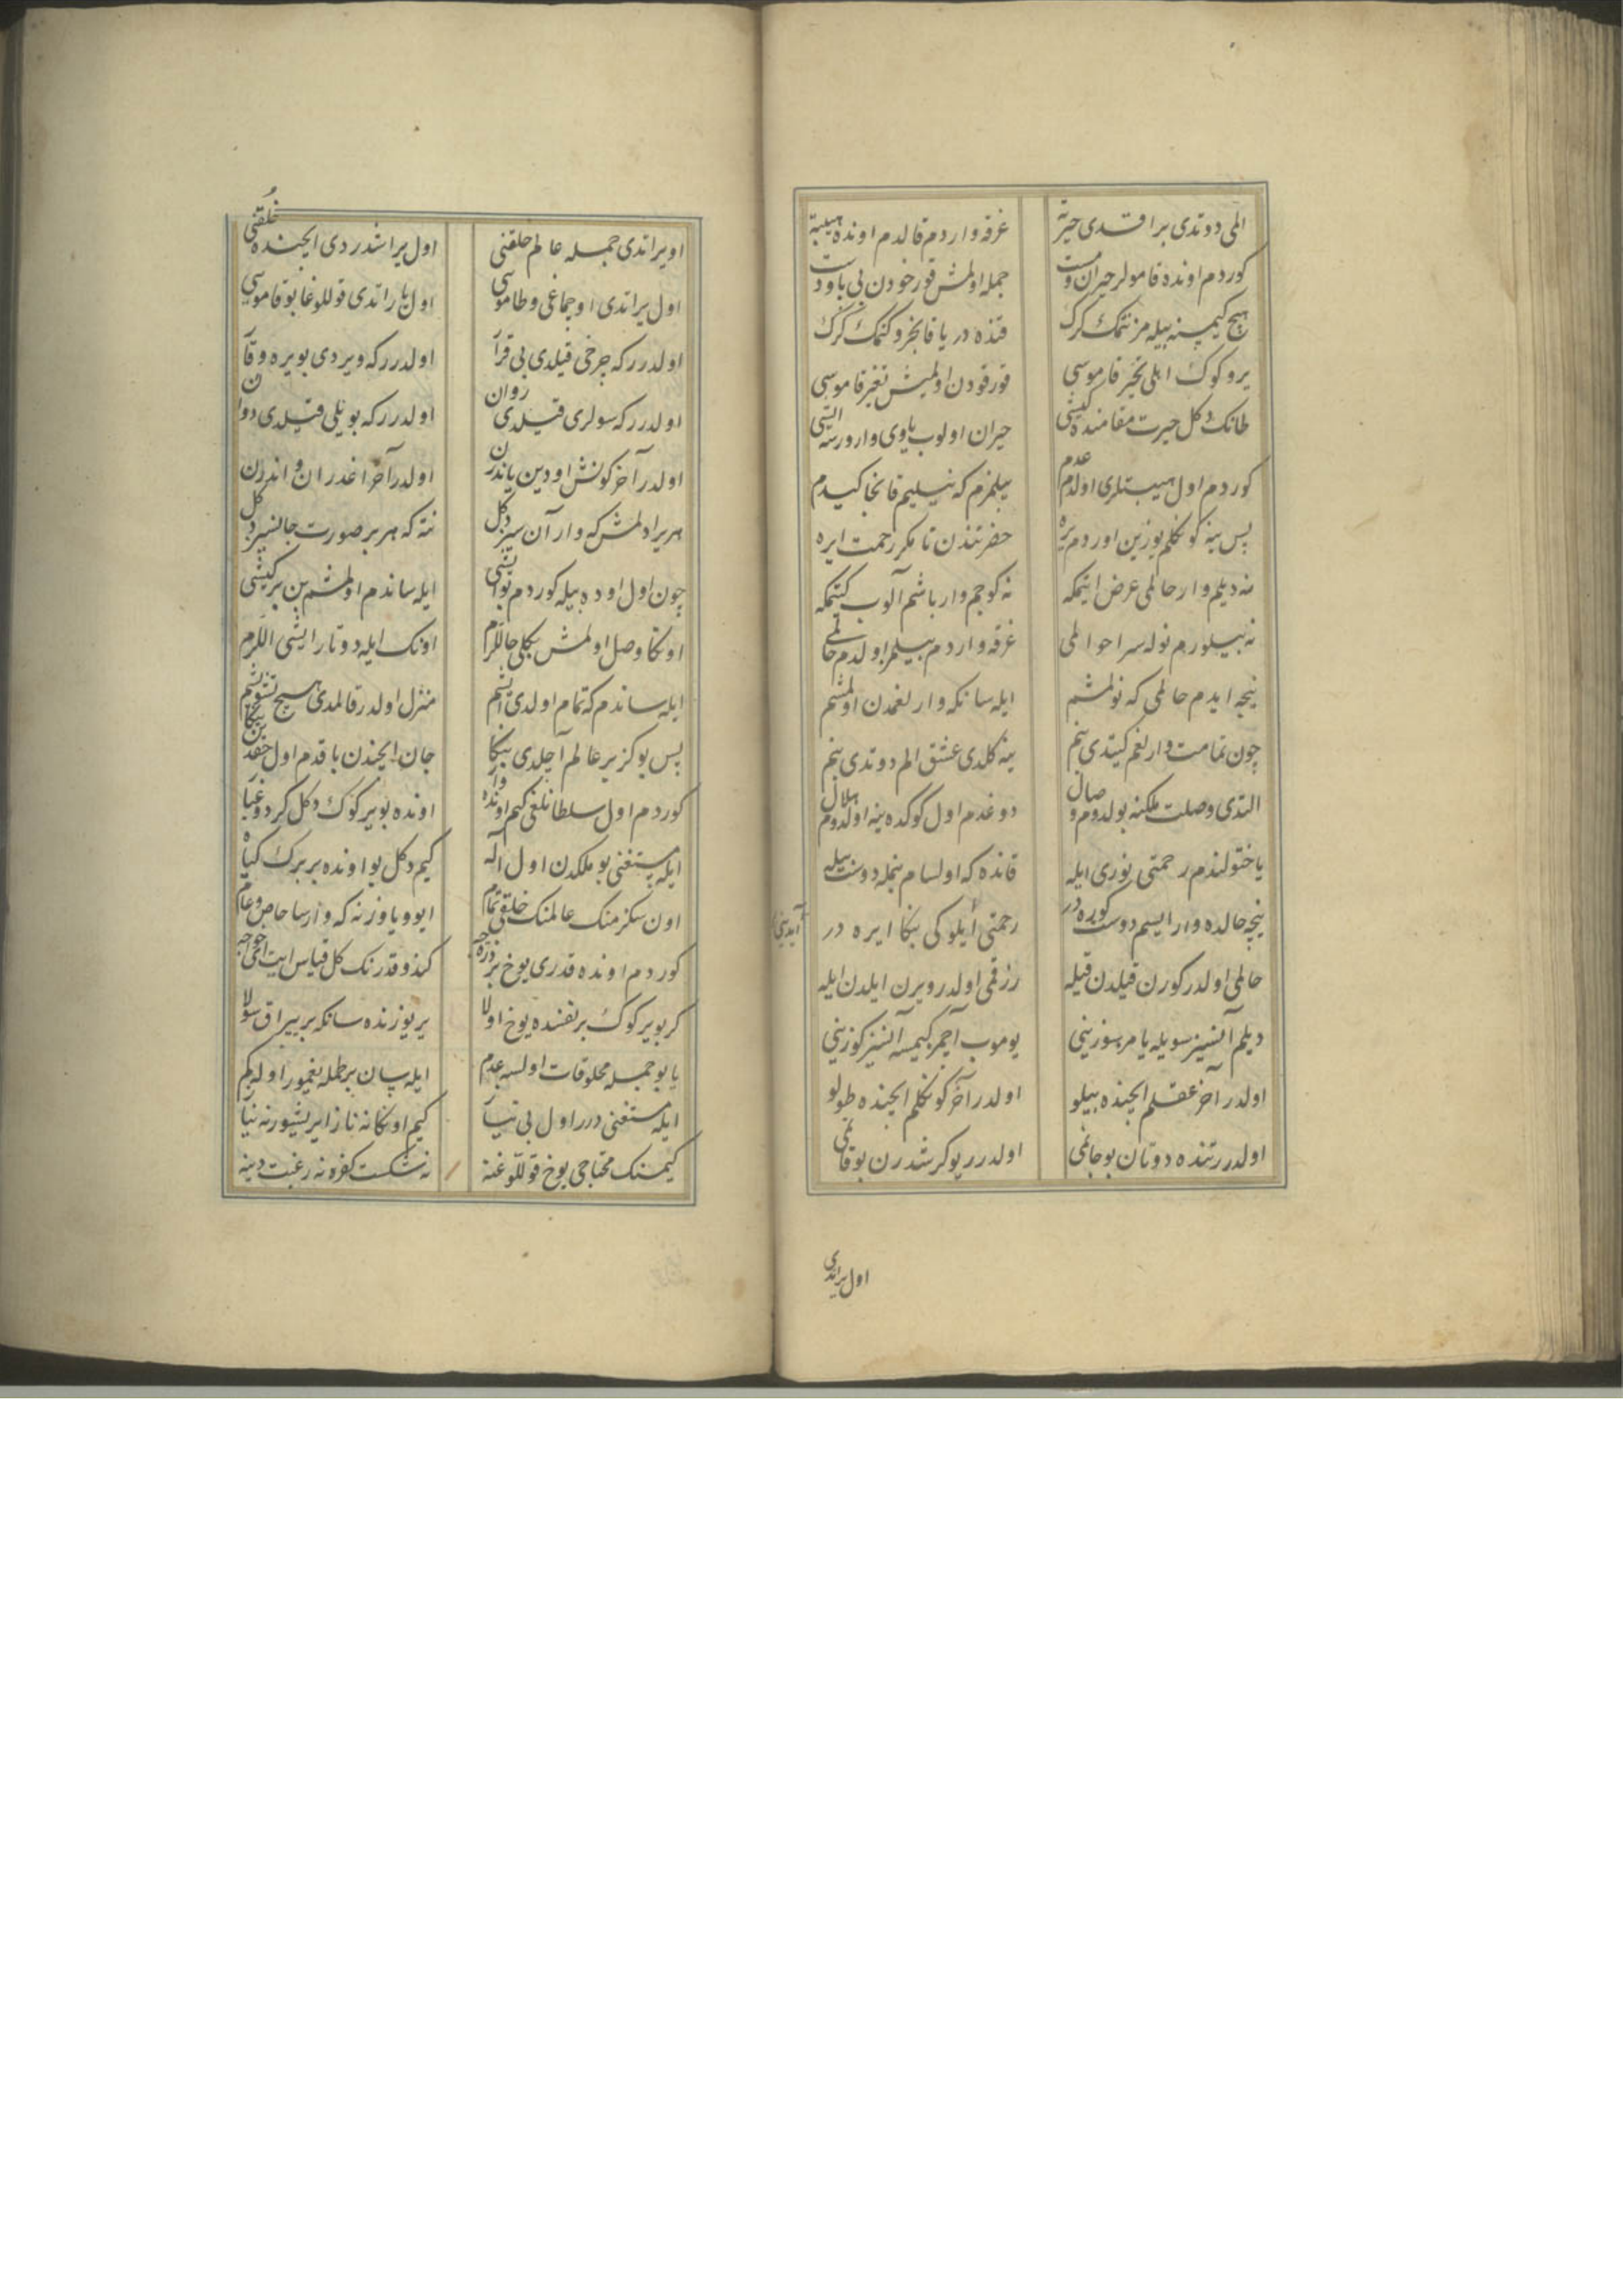 المی دوتدی براقدی حیرته غرقه واردم قالدم اونده هیبته
کوردم اونده قامولر حیران و مست جمله اولمش قورخودن بی پا و دست
هیچ کیمسنه بیله مز نتمک کرک قنده دریا قانجرو کتمک کرک
یر و کوک اهلی تحیر قاموسی قورقودن اولمیش تغیر قاموسی
طانک دکل حیرت مقامنده کیشی حیران اولوب یاوی وارورسه اشی
کوردم اول هیبتلری اولدم عدم بیلمزم که نیلیم قانجا کیدم
پس ینه کونکلم یوزین اوردم یره حضرتندن تا مکر رحمت ایره
نه دیلم وار حالمی عرض ایتمکه نه کوجم وار باشم آلوب کتمکه
نه بیلورم نوله سر احوالمی غرقه واردم بیلمز اولدم حالمی
نیجه ایدم حالمی که نولمشم ایله سانکه وارلغمدن اولمشم
چون تمامت وارلغم کیتدی بنم ینه کلدی عشق الم دوتدی بنم
التدی وصلت ملکنه بولدوم وصال دوغدم اول کوکده ینه اولدوم هلال
یاختولندم رحمتی نوری ایله قانده که اولسام بنمله دوست بیله
نیجه حالده وار ایسم دوست کوره در رحمتی ایلوکی بنکا ایره در
حالمی اولدر کورن قیلدن قیله رزقمی اولدر ویرن ایلدن ایله
دیلم آنسیز سویله یامز سوزینی یوموب آچمز کیمسه آنسیز کوزینی
اولدر آخر عقلم ایچنده بیلو اولدر آخر کونکلم ایچنده طولو
اولدرر تنده دوتان بو جانمی اولدرر یوکرشدرن بو قانمی
اول یراتدی
او یراتدی جمله عالم خلقنی اول یراشدردی ایچنده خُلقنی
اول یراتدی اوجماغی و طاموسی اول یاراتدی قوللوغا بو قاموسی
اولدرر که چرخی قیلدی بی قرار اولدرر که ویردی بو یره وقار
اولدرر که سولری قیلدی روان اولدرر که بو یلی قیلدی دوان
اولدر آخر کونش اودین یاندرن اولدر آخر اغدران و اندرن
هر یرادلمش که وار آنسیز دکل نته که هر بر صورت جانسیز دکل
چون اول اوده بیله کوردم بو اشی ایله ساندم اولمشم بن بر کیشی
اونکا وصل اولمش بکلی جانلرم اونک ایله دوتار ایشی اللرم
ایله ساندم که تمام اولدی ایشم منزل اولدر قالمدی هیچ تشویشم
پس بو کز بر عالم آچلدی بنکا جان ایچندن باقدم اول خقدن ینکا
کوردم اول سلطانلغی کیم اونده وار اونده بو یر کوک دکل کرد و غبار
ایله مستغنی بو ملکدن اول اله کیم دکل بو اونده بر برک کیاه
اون سکز منک عالمنک خلقی تمام ایو و یاوز نه که وارسا خاص و عام
کوردم اونده قدری یوخ بر ذرجه کندو قدرنک کل قیاس ایت اخی
کر بو یر کوک بر نفسنده یوخ اولا یر یوزنده سانکه بر یپراق سولا
یا بو جمله مخلوقات اولسه عدم ایله سان بر طمله یغمور اوله کم
ایله مستغنی درر اول بی نیاز کیم اونکا نه ناز ایریشور نه نیاز
کیمسنک محتاجی یوخ قوللوغنه نه شکست کفره نه رغبت دینه